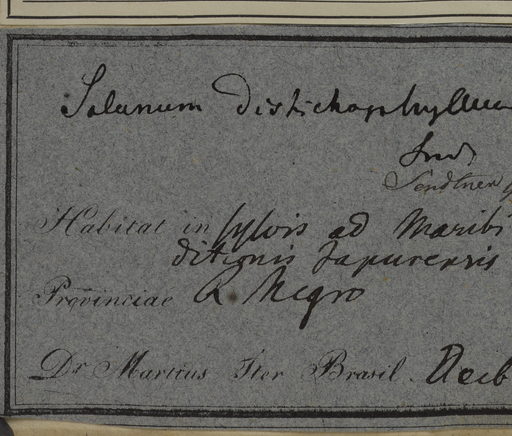 Solanum distichophyllum
Sendtner
Habitat in sylvis ad Maribi
ditionis Japurensis
Provinciae R. Negro
Dr. Martius Iter Brasil. Decb